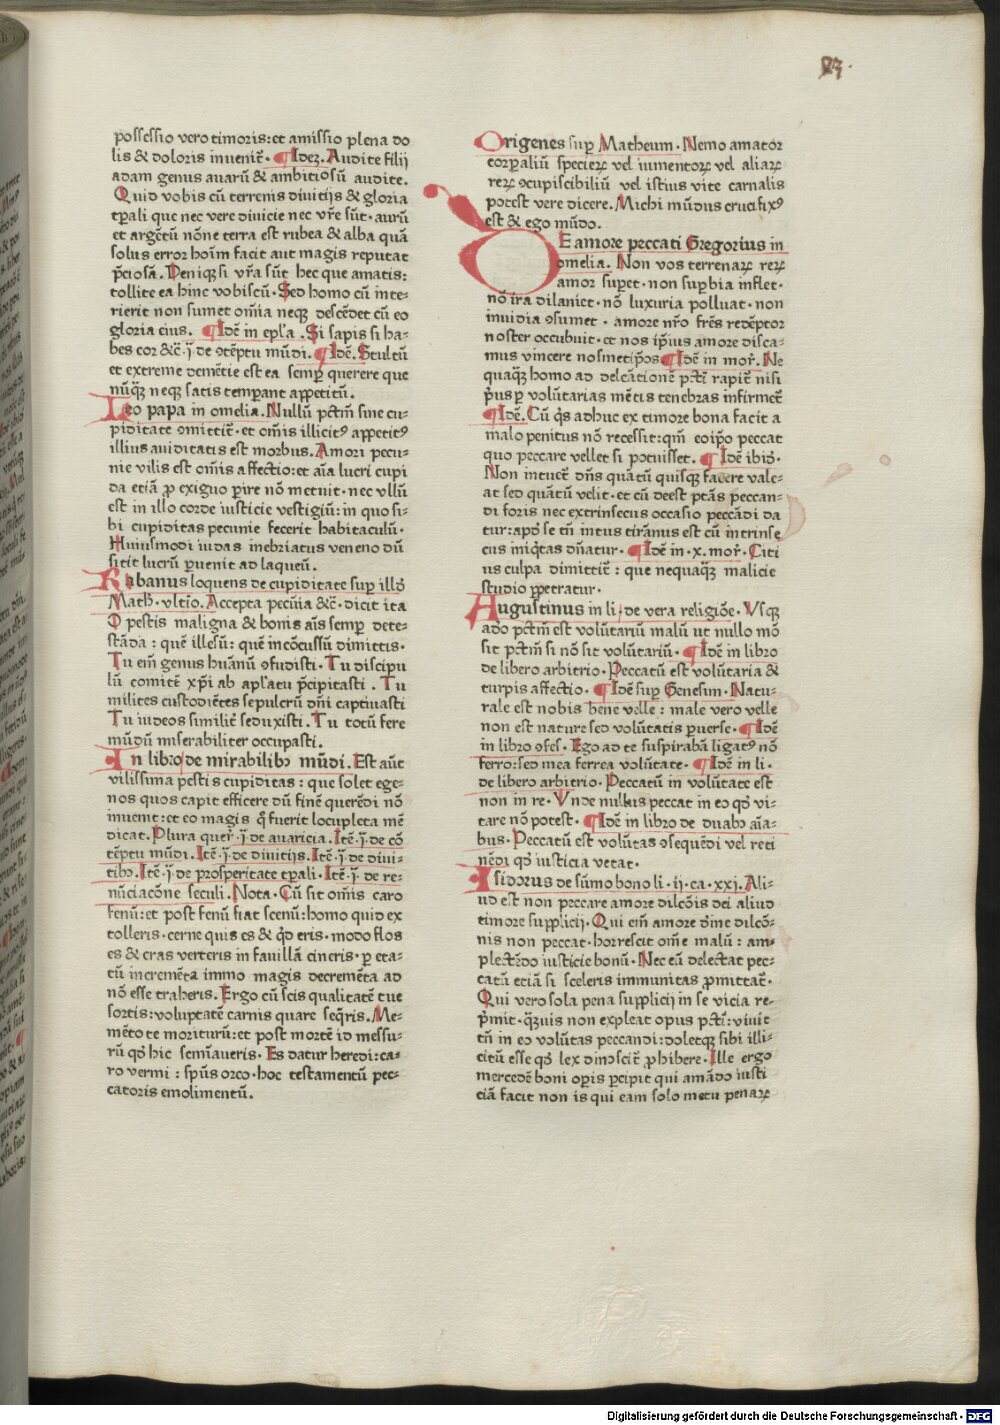 83.
possessio vero timoris: et amissio plena do
lis & doloris inuenit᷑. ¶Idez. Audite filij
adam genus auarū & ambitiosū audite.
Quid vobis cū terrenis diuitijs & gloria
tꝑali que nec vere diuicie nec vr̄e sūt. aurū
et argētū nōne terra est rubea & alba quā
solus error hoīm facit aut magis reputat
p̄ciosā. Deniqꝫ si vr̄a sūt hec que amatis:
tollite ea hinc vobiscū. Sed homo cū inte-
rierit non sumet om̄ia neqꝫ descēdet cū eo
gloria eius. ¶Idē in epl'a. Si sapis si ha-
bes cor &c̄. ij. de ꝯtēptu mūdi. ¶Idē. Stultū
et extreme demētie est ea semꝑ querere que
nūqꝫ̄ neqꝫ satis temperant appetitū.
Leo papa in omelia. Nullū pctm̄ sine cu-
piditate ꝯmittit᷑. et om̄is illicitꝰ appetitꝰ
illius auiditatis est morbus. Amori pecu-
nie vilis est om̄is affectio: et aīa lucri cupi
da etiā ꝓ exiguo ꝑire nō metuit. nec vllū
est in illo corde iusticie vestigiū: in quo si-
bi cupiditas pecunie fecerit habitaculū.
Huiusmodi iudas inebriatus veneno dū
sitit lucrū ꝑuenit ad laqueū.
Rabanus loquens de cupiditate suꝑ illo
Math. vltīo. Accepta pecūia &c̄. dicit ita
O pestis maligna & bonis aīs semꝑ dete-
stāda: quē illesū: quē incōcussū dimittis.
Tu em̄ genus hūanū ꝯfudisti. Tu discipu
lū comitē xp̄i ab apl'atu p̄cipitasti. Tu
milites custodiētes sepulcrū dn̄i captiuasti
Tu iudeos similit᷑ seduxisti. Tu totū fere
mūdū miserabiliter occupasti.
In libro de mirabilibꝰ mūdi. Est aūt
vilissima pestis cupiditas: que solet ege-
nos quos capit efficere dū finē querēdi nō
inueniūt: et eo magis qͥ fuerit locupleta mē
dicat. Plura quer̄. ij. de auaricia. Itē. ij. de cō
tēptu mūdi. Itē. ij. de diuitijs. Itē. ij. de diui-
tibꝰ. Itē. ij. de prosperitate tꝑali. Itē. ij. de re-
nūciacōne seculi. Nota. Cū sit om̄is caro
fenū: et post fenū fiat scenū: homo quid ex
tolleris. cerne quis es & qͥd eris. modo flos
es & cras verteris in fauillā cineris. ꝑ eta-
tū incremēta immo magis decremēta ad
nō esse traheris. Ergo cū scis qualitatē tue
sortis: voluptatē carnis quare seq̄ris. Me-
mēto te moriturū: et post mortē id messu-
rū qꝰ hic semīaueris. Es datur heredi: ca-
ro vermi: sp̄us orco. hoc testamentū pec-
catoris emolimentū.
Origenes suꝑ Matheum. Nemo amator
corꝑaliū specieꝝ vel iumentoꝝ vel aliaꝝ
reꝝ ꝯcupiscibiliū vel istius vite carnalis
potest vere dicere. Michi mūdus crucifixꝰ
est & ego mūdo.
DE amore peccati Gregorius in
omelia. Non vos terrenaꝝ reꝝ
amor suꝑet. non suꝑbia inflet.
nō ira dilaniet. nō luxuria polluat. non
inuidia ꝯsumet. amore nr̄o fr̄es redēptor
noster occubuit. et nos ip̄ius amore disca-
mus vincere nosmetip̄os ¶Idē in mor̄. Ne
quaqꝫ̄ homo ad delcātionē pcti rapit᷑ nisi
pꝰus ꝑ volūtarias mētis tenebras infirmet᷑
¶Idē. Cū qͥs adhuc ex timore bona facit a
malo penitus nō recessit: qm̄ eoip̄o peccat
quo peccare vellet si potuisset. ¶Idē ibiꝰ.
Non intuet᷑ dn̄s quātū quisqꝫ facere vale-
at sed quātū velit. et cū deest ptās peccan-
di foris nec extrinsecus occasio peccādi da
tur: apꝰ se tn̄ intus tirānus est cū intrinse
cus iniqͥtas dn̄atur. ¶Idē in. x. mor̄. Citi
us culpa dimittit᷑: que nequaqꝫ̄ malicie
studio ꝑpetratur.
Augustinus in li. de vera religiōe. Usqꝫ
adeo pctm̄ est volūtariū malū ut nullo mō
sit pctm̄ si nō sit volūtariū. ¶Idē in libro
de libero arbitrio. Peccatū est volūtaria &
turpis affectio. ¶Idē suꝑ Genesim. Natu-
rale est nobis bene velle: male vero velle
non est nature sed volūtatis ꝑuerse. ¶Idē
in libro ꝯfes. Ego ad te suspirabā ligatꝰ nō
ferro: sed mea ferrea volūtate. ¶Idē in li.
de libero arbitrio. Peccatū in volūtate est
non in re. Unde nullus peccat in eo qꝰ vi-
tare nō potest. ¶Idē in libro de duabꝰ aīa-
bus. Peccatū est volūtas ꝯsequēdi vel reti
nēdi qꝰ iusticia vetat.
Isidorus de sūmo bono li. ij. ca. xxj. Ali-
ud est non peccare amore dilcōis dei aliud
timore supplicij. Qui em̄ amore dōine dilcō-
nis non peccat. horrescit om̄e malū: am-
plectēdo iusticie bonū. Nec eū delectat pec-
catū etiā si sceleris immunitas ꝓmittat᷑.
Qui vero sola pena supplicij in se vicia re-
p̄mit. qͣꝫuis non expleat opus pcti: viuit
tn̄ in eo volūtas peccandi: doletqꝫ sibi illi-
citū esse qꝰ lex dinoscit᷑ ꝓhibere. Ille ergo
mercedē boni oꝑis ꝑcipit qui amādo iusti
ciā facit non is qui eam solo metu penaꝝ
Digitalisierung gefördert durch die Deutsche Forschungsgemeinschaft - DFG